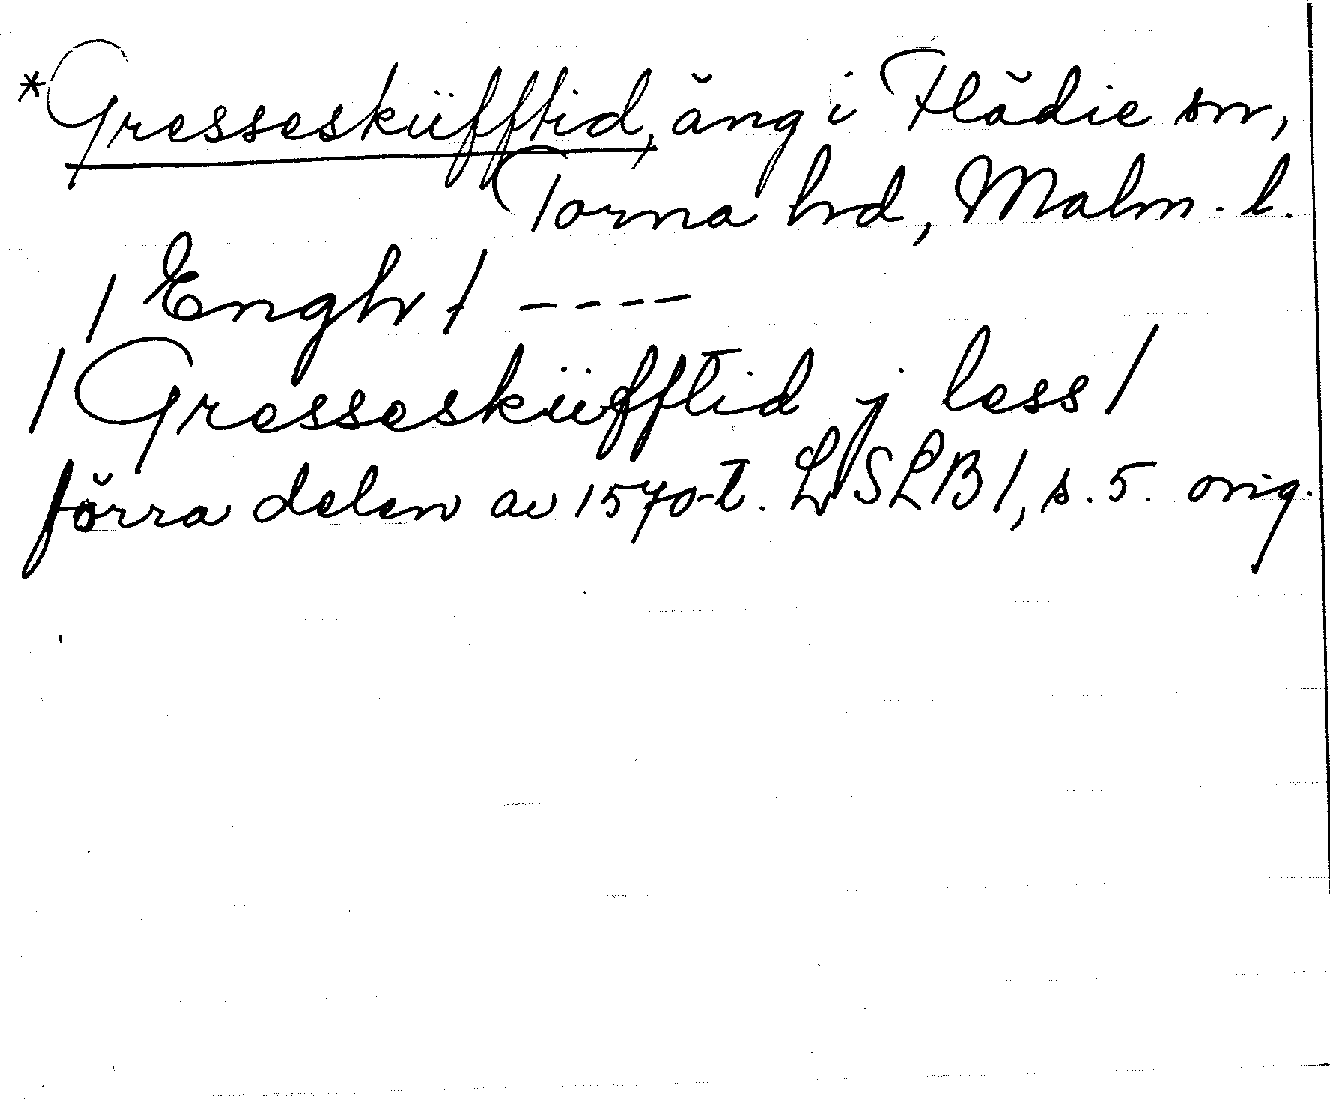 *Gresseskűfftid, äng i Flädie sn,
Torna hd, Malm. l.
/ Engh / ----
/ Gresseskűfftid j less /
förra delen av 1570-t. LSLB 1, s. 5. orig.